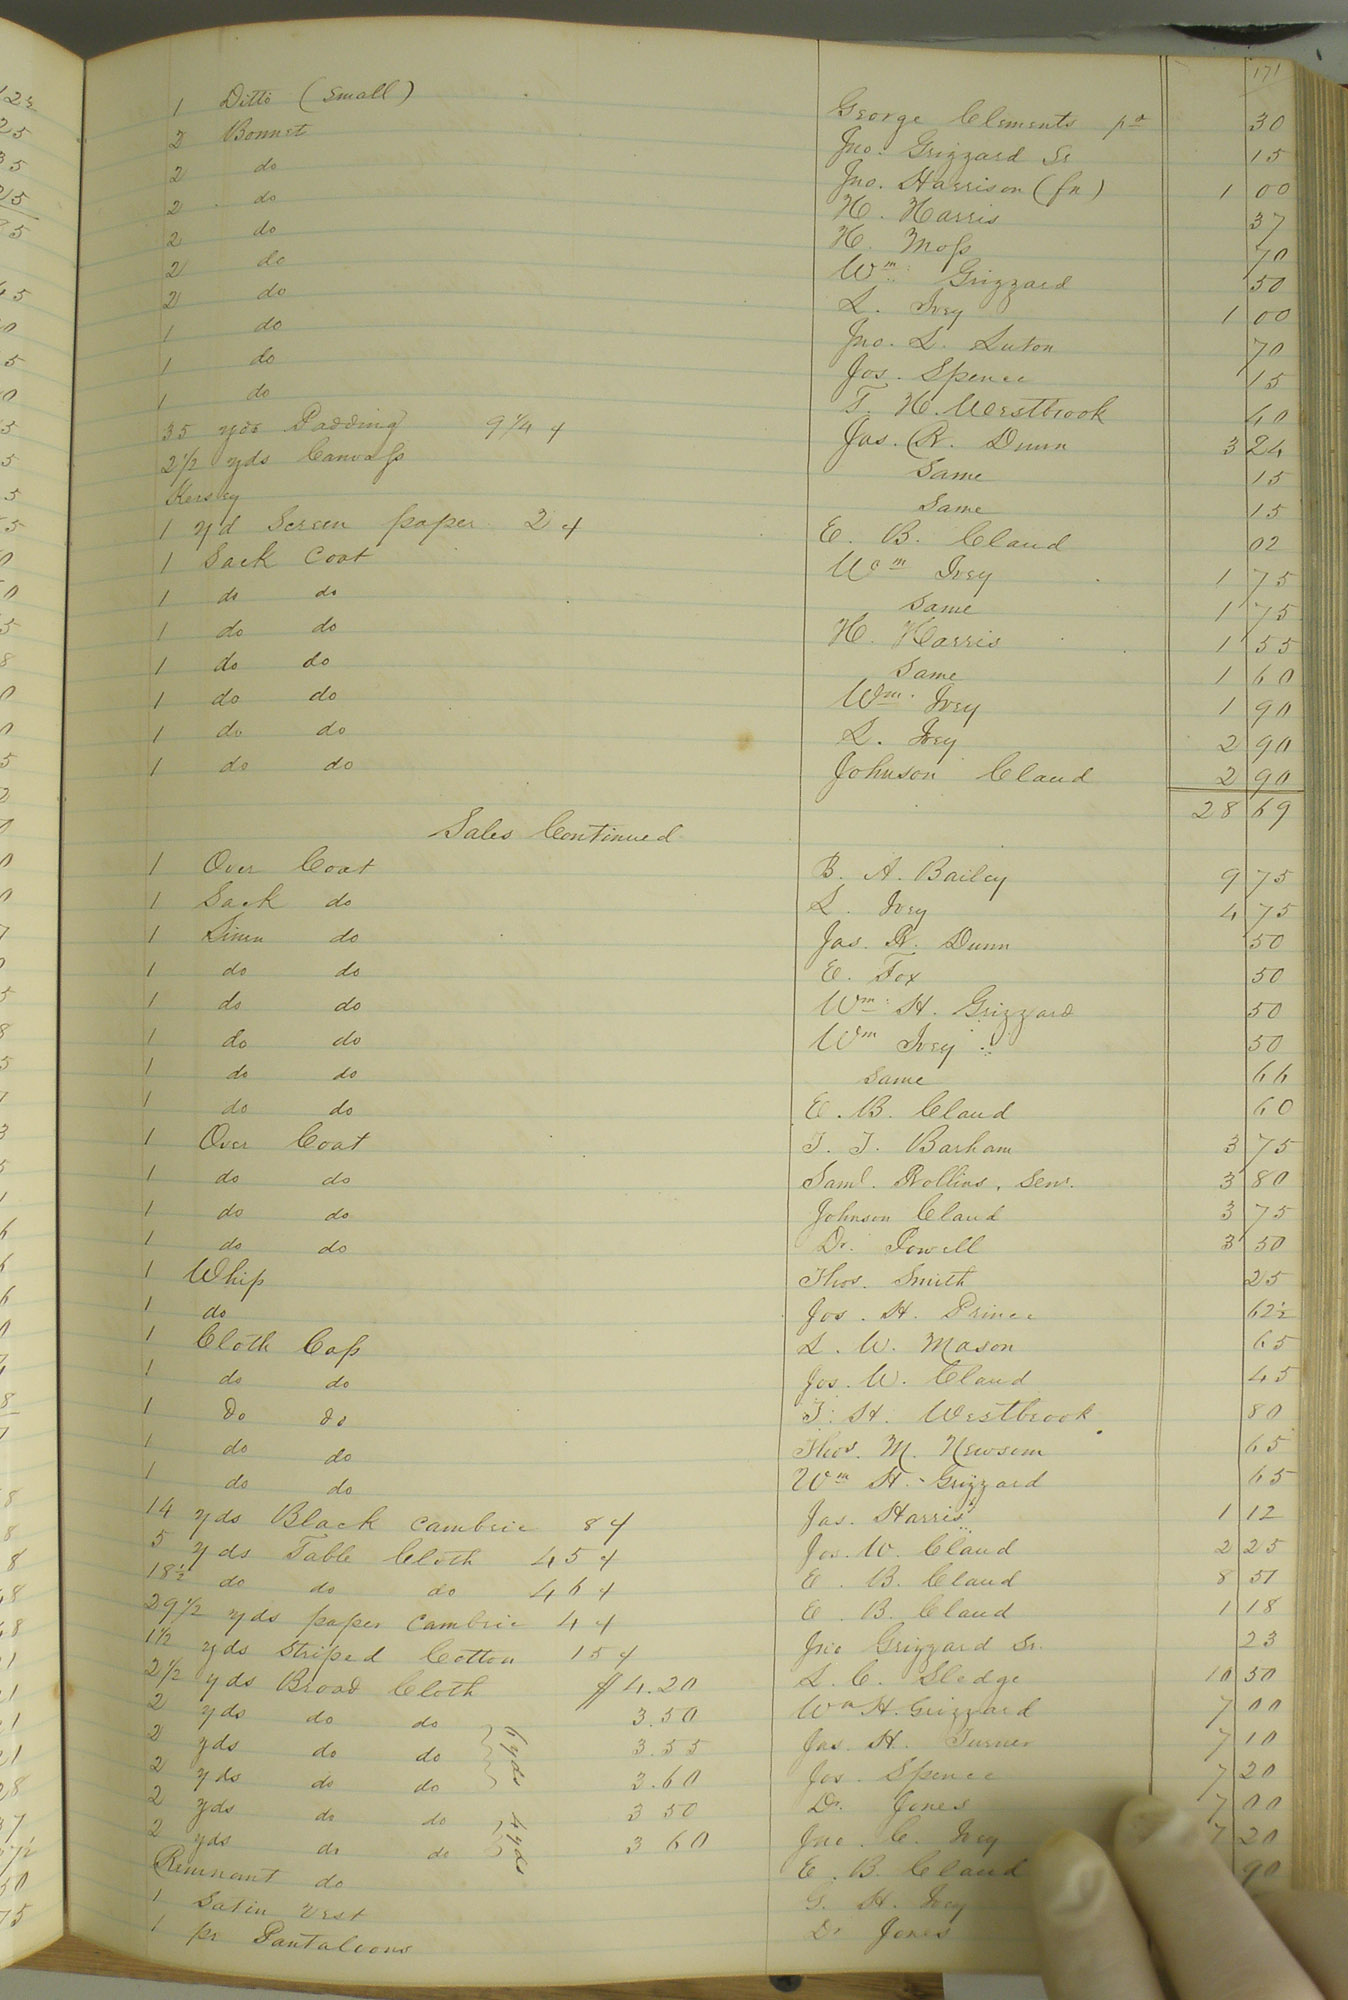 171
1 Ditto (Small) George Clements pd 30
2 Bonnet Jno. Grizzard Sr 15
2 do Jno. Harrison (fn) 1 00
2 do H. Harris 37
2 do H. Moss 70
2 do Wm Grizzard 50
2 do L. Ivey 1 00
1 do Jno. L. Luton 70
1 do Jos. Spence 15
1 do T. H. Westbrook 40
35 yds Padding 9 1/4 ¢ Jas. R. Dunn 3 24
2 1/2 yds Canvass Same 15
Kersey Same 15
1 yd Screen paper 2 ¢ E. B. Claud 02
1 Sack Coat Wm Ivey 1 75
1 do do Same 1 75
1 do do H. Harris 1 55
1 do do Same 1 60
1 do do Wm. Ivey 1 90
1 do do L. Ivey 2 90
1 do do Johnson Claud 2 90
28 69
Sales Continued
1 Over Coat B. A. Bailey 9 75
1 Sack do L. Ivey 4 75
1 Linen do Jas. R. Dunn 50
1 do do E. Fox 50
1 do do Wm. H. Grizzard 50
1 do do Wm Ivey 50
1 do do Same 66
1 do do E. B. Claud 60
1 Over Coat T. J. Barham 3 75
1 do do Saml. Rollins, Senr. 3 80
1 do do Johnson Claud 3 75
1 do do Dr. Powell 3 50
1 Whip Thos. Smith 25
1 do Jos. H. Prince 62½
1 Cloth Cap L. W. Mason 65
1 do do Jos. W. Claud 45
1 do do T. H. Westbrook 80
1 do do Thos. M. Newsom 65
1 do do Wm H. Grizzard 65
14 yds Black cambric 8 ¢ Jas. Harris 1 12
5 yds Table Cloth 45 ¢ Jos. W. Claud 2 25
18½ do do do 46 ¢ E. B. Claud 8 51
29 1/2 yds paper cambric 4 ¢ E. B. Claud 1 18
1 1/2 yds striped Cotton 15 ¢ Jno Grizzard Sr. 23
2 1/2 yds Broad Cloth $4.20 L. C. Sledge 10 50
2 yds do do 3.50 Wm H. Grizzard 7 00
2 yds do do 6 yds 3.55 Jas. H. Turner 7 10
2 yds do do 3.60 Jos. Spence 7 20
2 yds do do 3 50 Dr. Jones 7 00
2 yds do do 4 yds 3 60 Jno. C. Ivey 7 20
Remnant do E. B. Claud 90
1 Satin Vest G. H. Ivey
1 pr Pantaloons Dr Jones